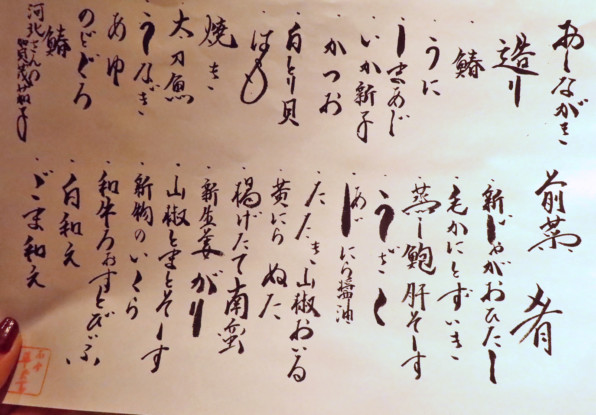 おしながき
造り
・鰆
・うに
・しまあじ
・いか新子
・かつお
・白とり貝
・はも
焼き
・太刀魚
・うなぎ
・あゆ
・のどぐろ
・鰆
河北さんの
賀茂なす
前菜 肴
・新じゃがおひたし
・毛かにとずいき
・蒸し鮑 肝そーす
・うざく
・あじ にら醤油
・たたき 山椒おいる
・黄にら ぬた
・揚げたて南蛮
・新生姜 がり
・山椒とまとそーす
・新物のいくら
・和牛ろおすとびいふ
・白和え
・ごま和え